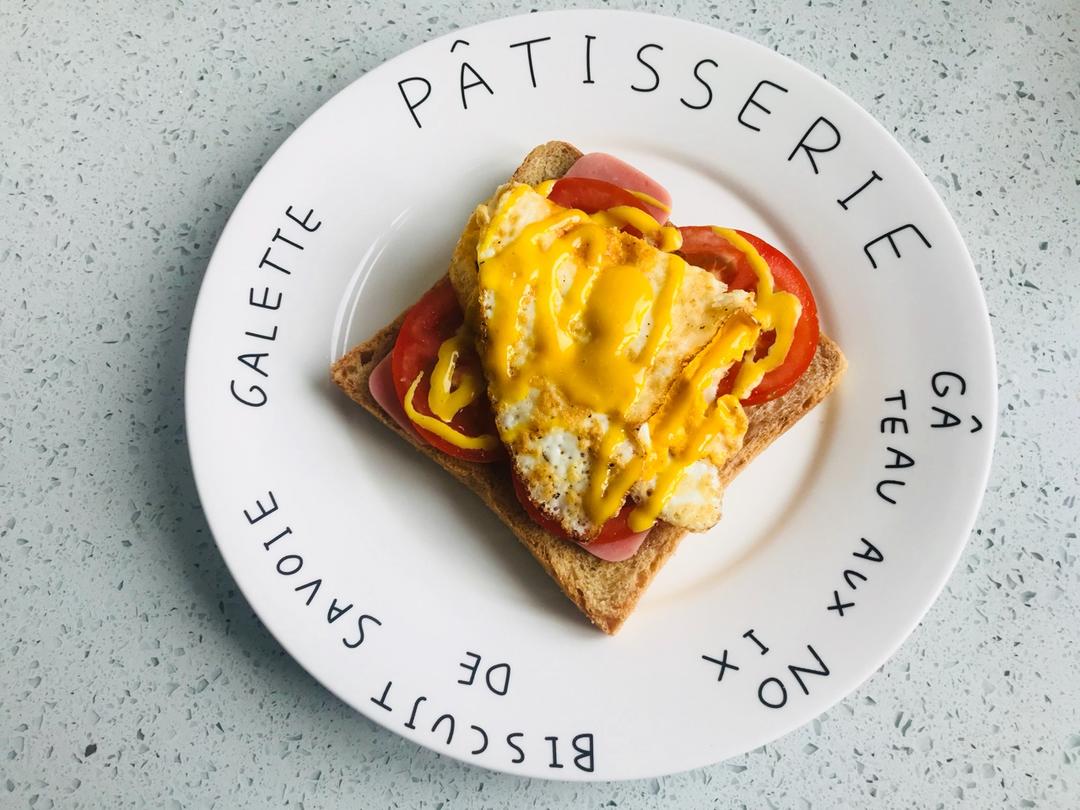 PÂTISSERIE
GÂ
TEAU AUX NO
IX
BISCUIT
DE
SAVOIE
GALETTE